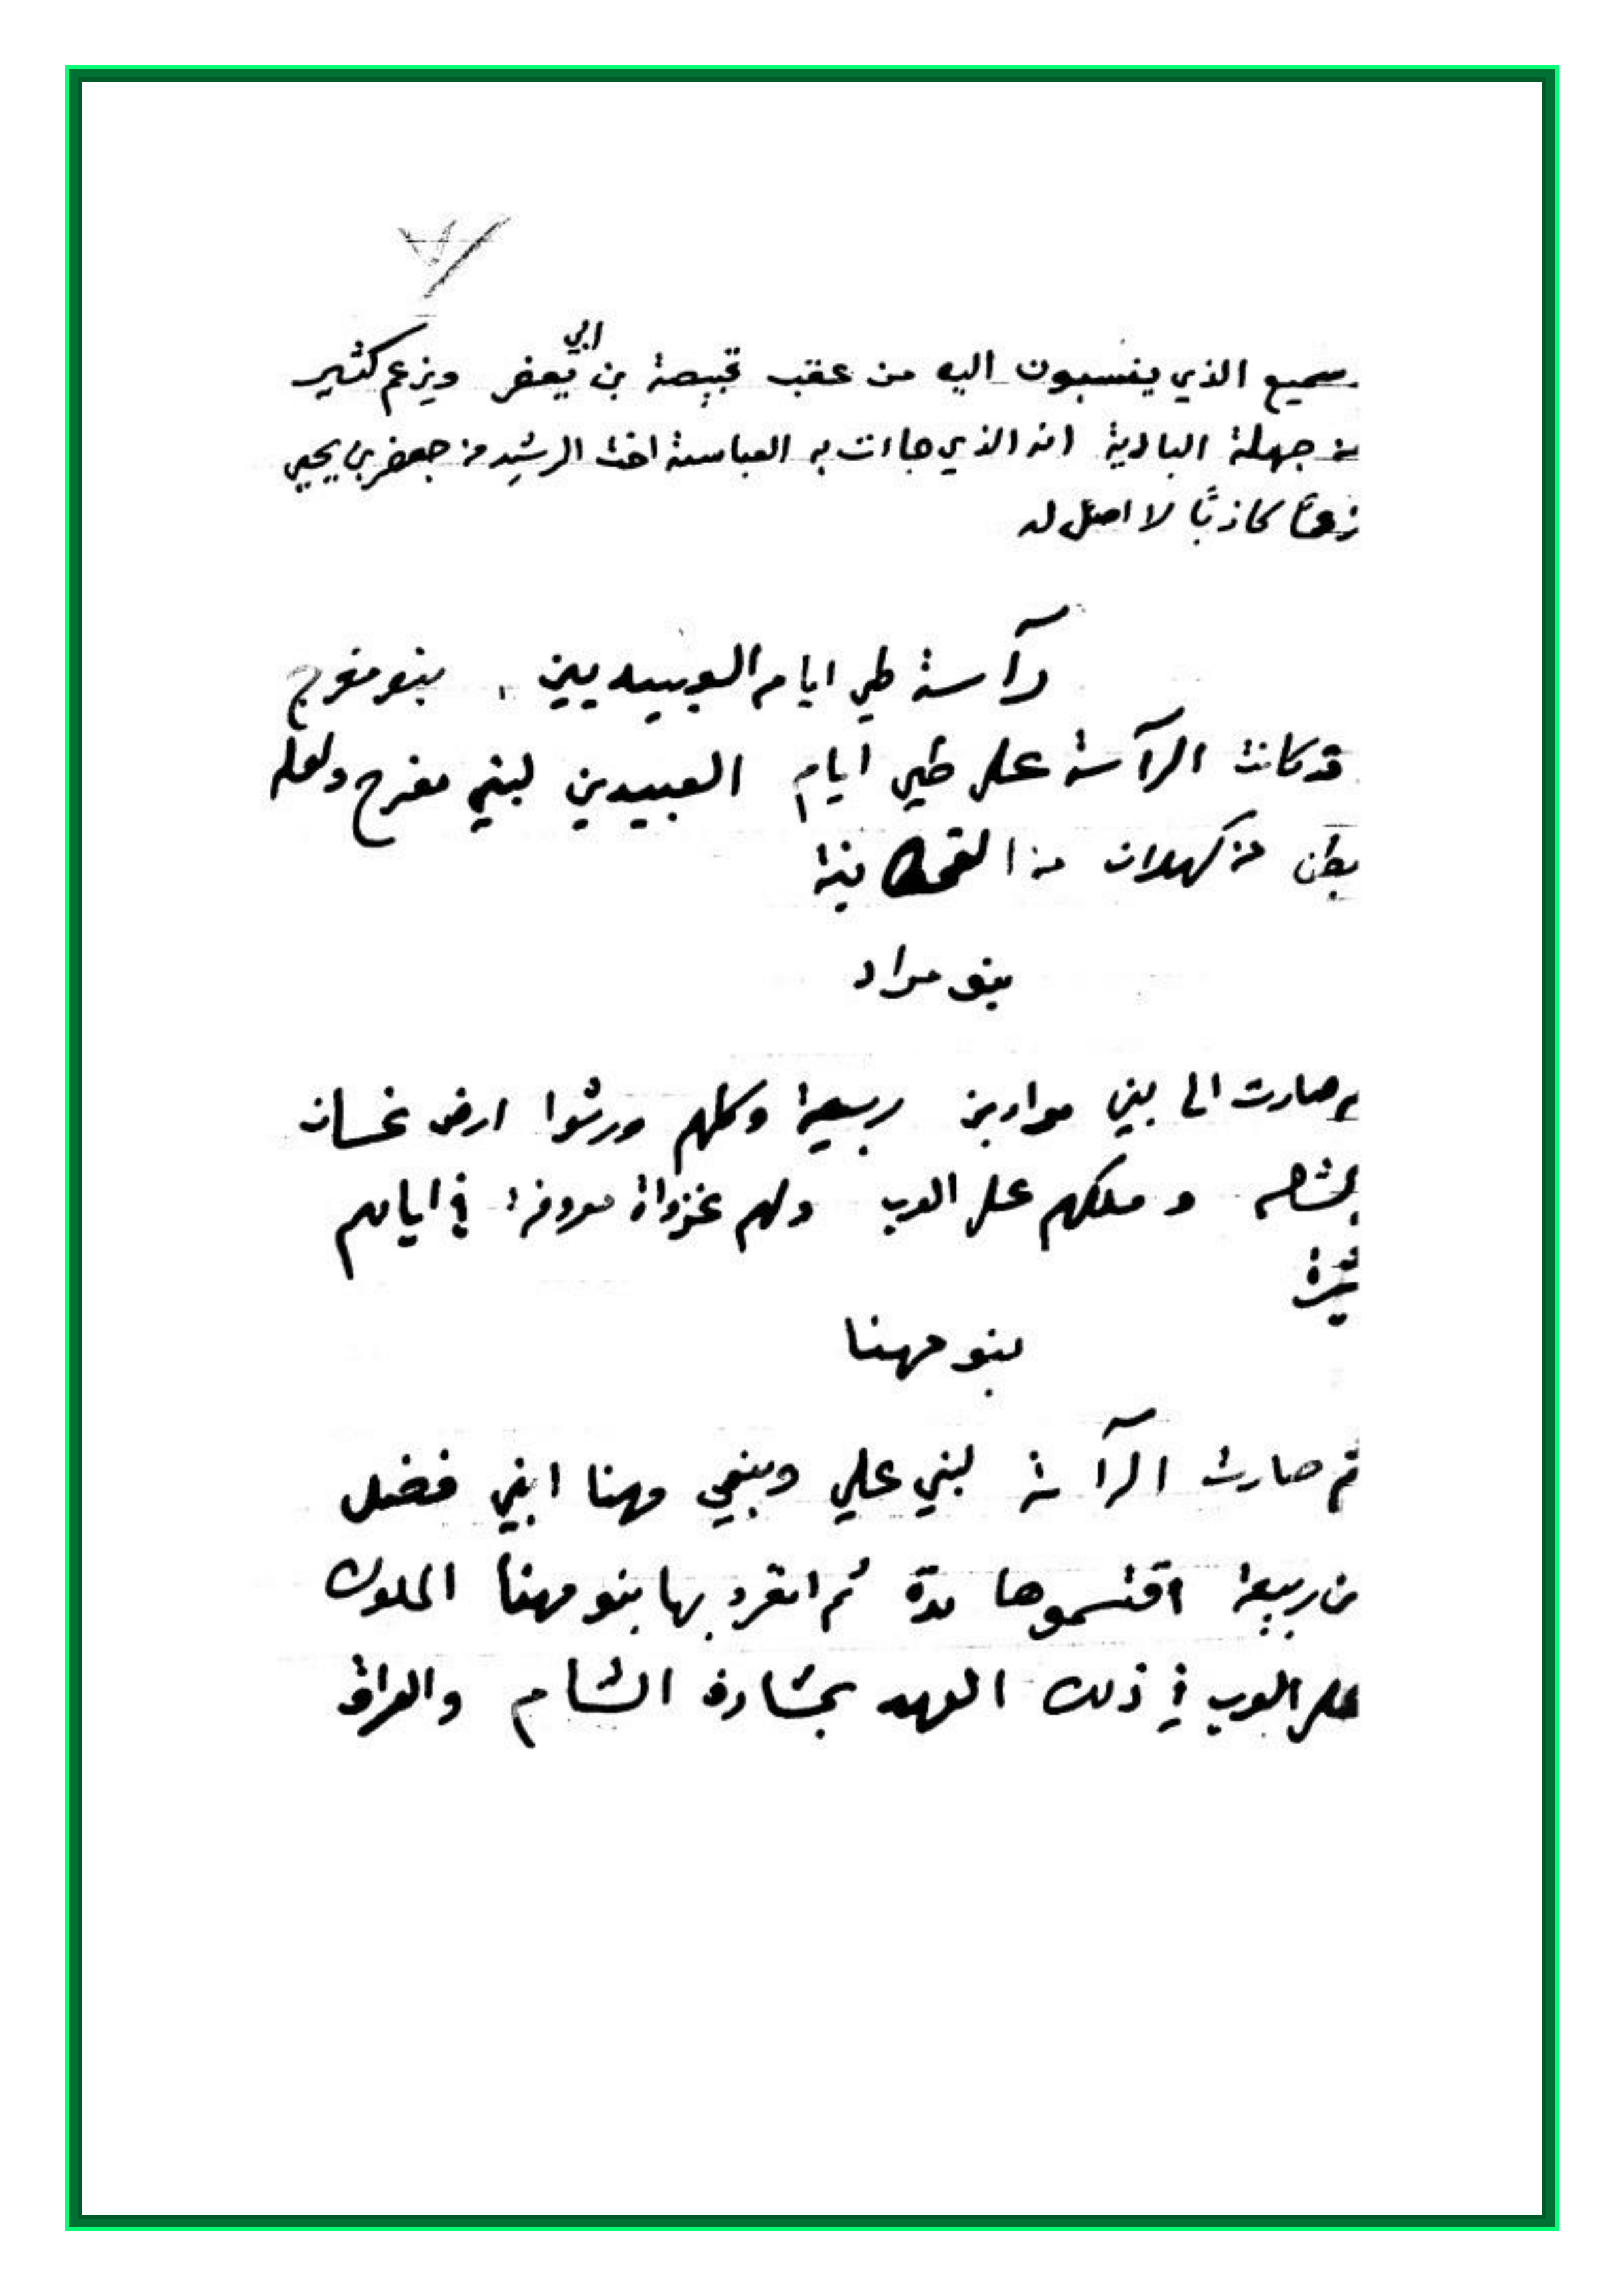 سميع الذي ينسبون اليه من عقب قبيصة بن ابي يعفر ويزعم كثير
من جهلة البادية انه الذي جاءت به العباسة اخت الرشيد من جعفر بن يحيى
زعمًا كاذبًا لا اصل له
رآسة طي ايام العبيديين . بنو مفرج
قد كانت الرآسة على طيي ايام العبيدين لبني مفرج ولعله
بطن من كهلان من القحطانية
بنو مراد
صارت الى بني مراد بن ربيعة وكلهم ورثوا ارض غسان
بالشام و ملكهم على العرب ولهم غزواة معروفة في ايامهم
بنو مهنا
ثم صارت الرآسة لبني علي وبنيي مهنا ابني فضل
بن ربيعة اقتسموها مدة ثم انفرد بها بنو مهنا الملوك
على العرب في ذلك العهد بمشارف الشام والعراق